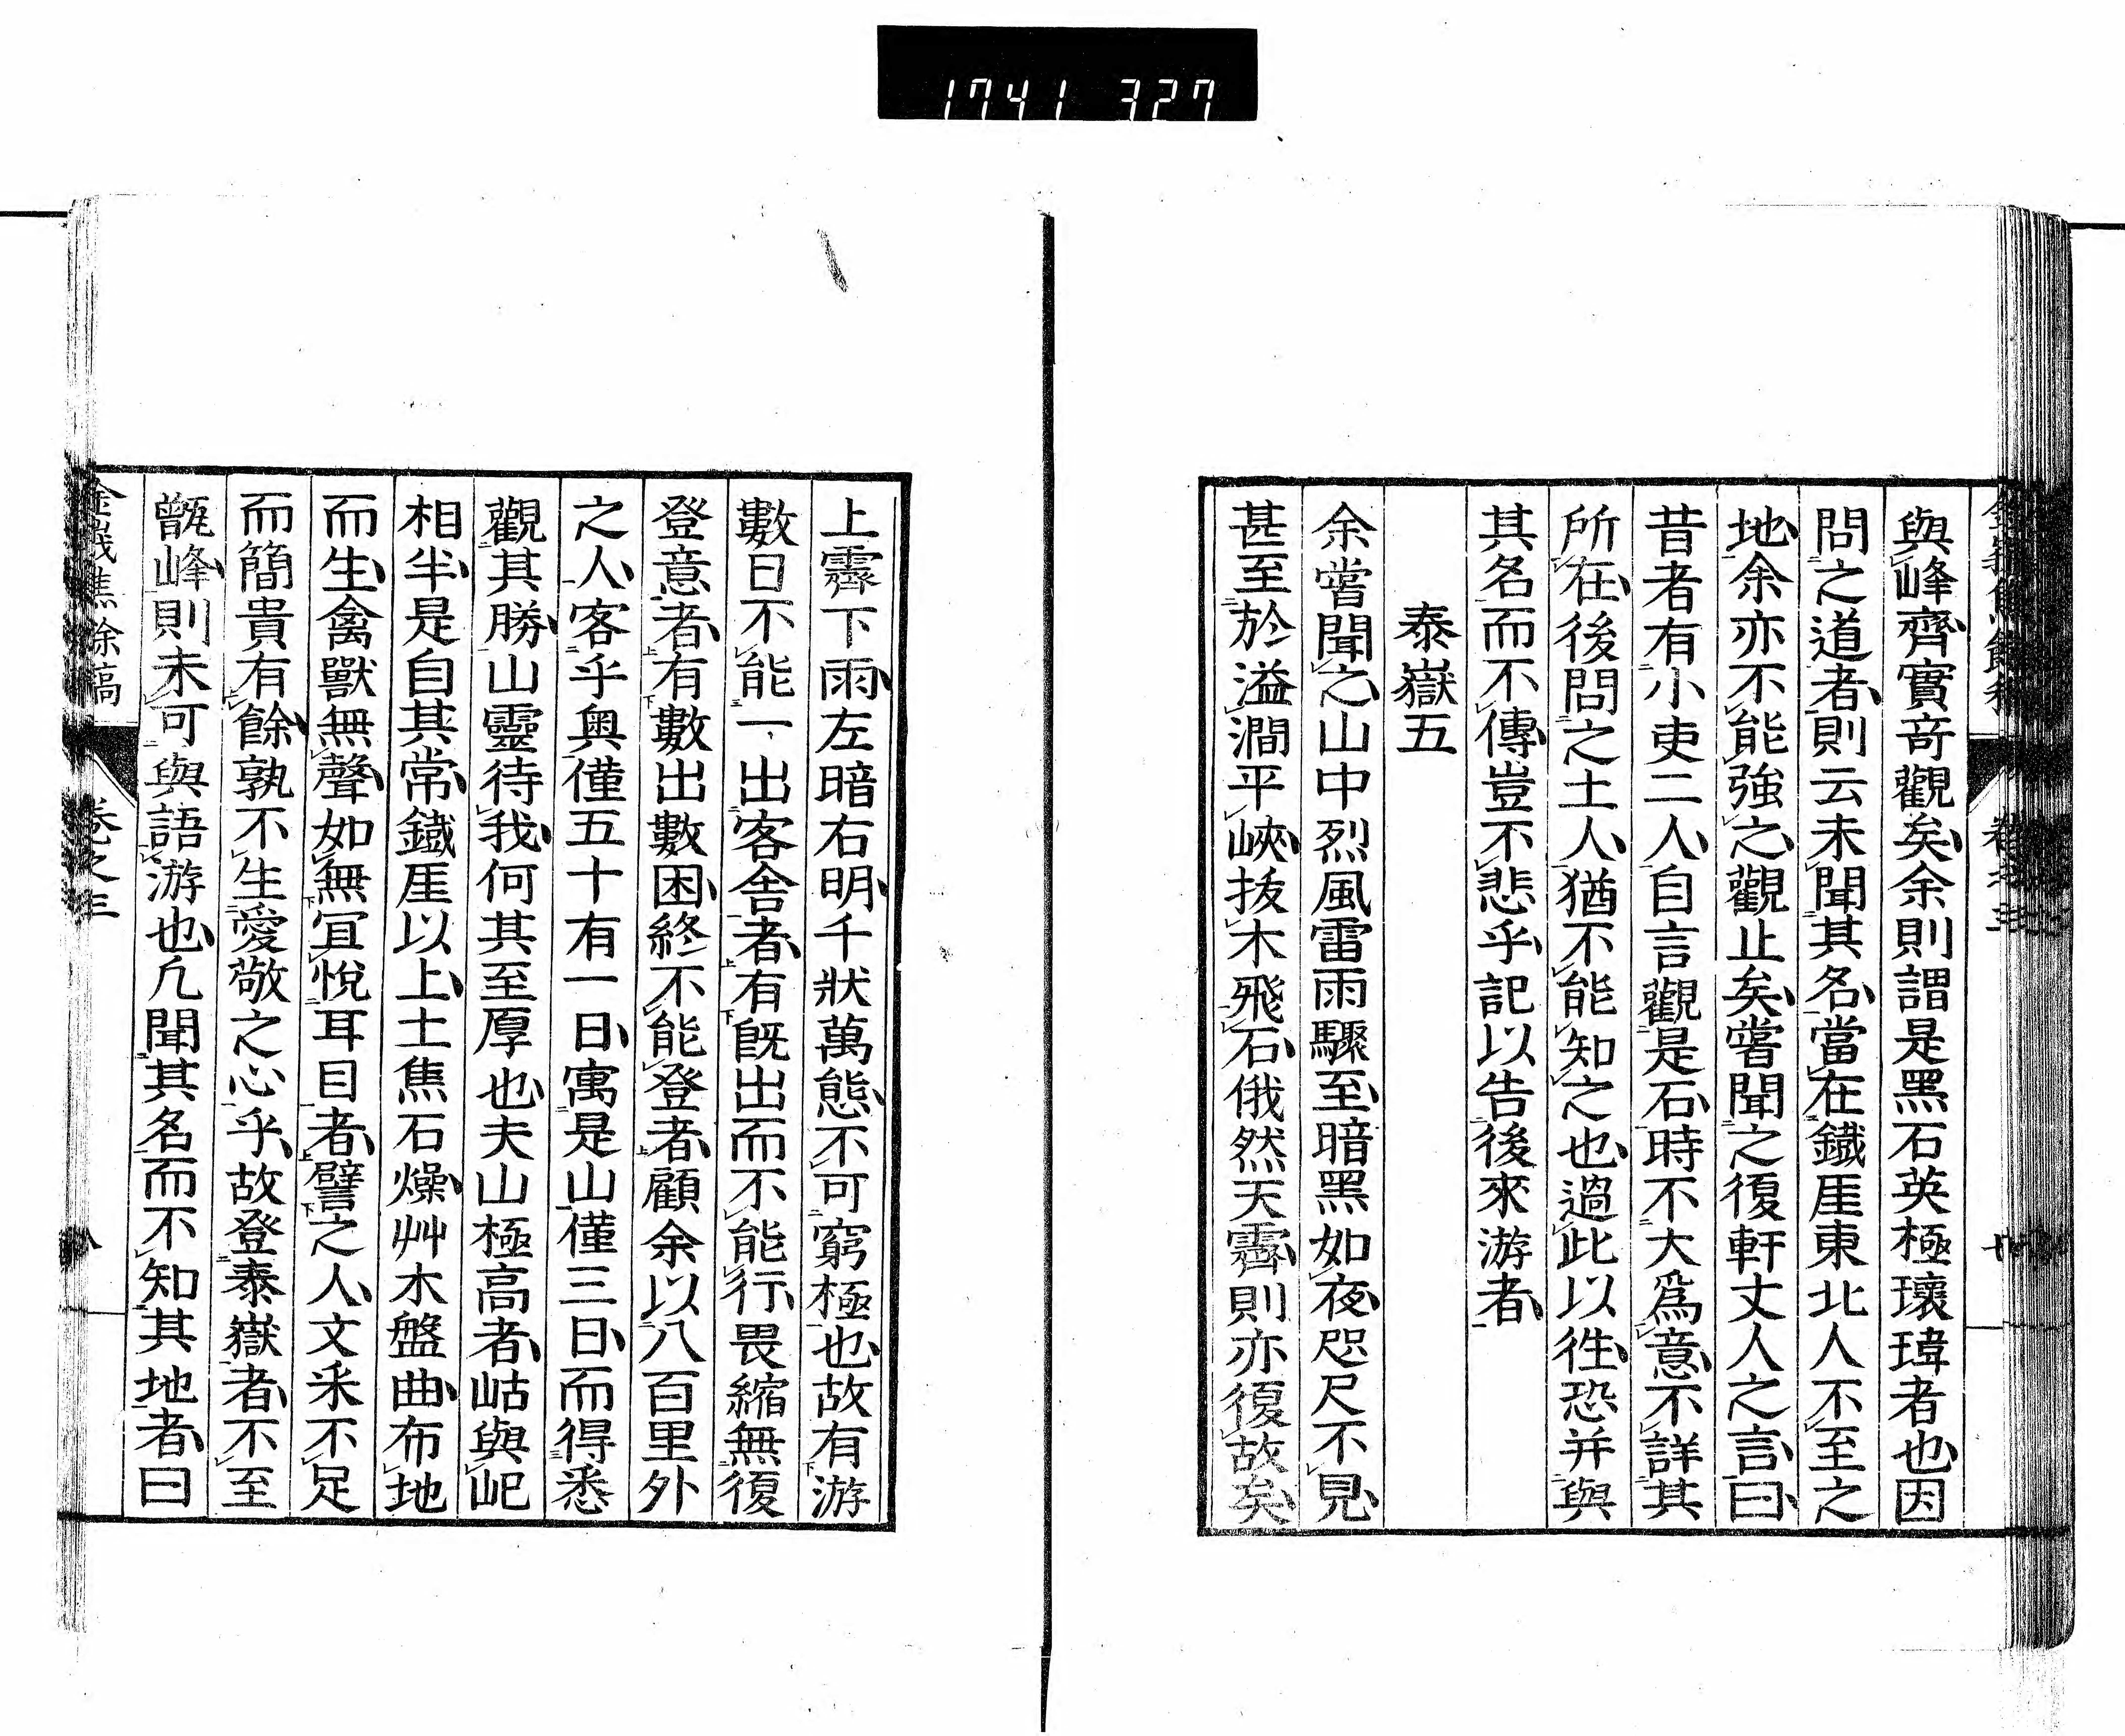 1741 327
與峰齊實竒觀矣余則謂是黑石英極瓌瑋者也因
問之道者則云未聞其名當在鐵厓東北人不至之
地余亦不能強之觀止矣嘗聞之復軒丈人之言曰
昔者有小吏二人自言觀是石時不大爲意不詳其
所在後問之土人猶不能知之也過此以徃恐并與
其名而不傳豈不悲乎記以告後來游者
泰嶽五
余嘗聞之山中烈風雷雨驟至暗黑如夜咫尺不見
甚至於溢澗平峽拔木飛石俄然天霽則亦復故矣
上霽下雨左暗右明千狀萬態不可窮極也故有游
數日不能一出客舍者有旣出而不能行畏縮無復
登意者有數出數困終不能登者顧余以八百里外
之人客乎奥僅五十有一日寓是山僅三日而得悉
觀其勝山靈待我何其至厚也夫山極高者岵與屺
相半是自其常鐵厓以上土焦石燥艸木盤曲布地
而生禽獸無聲如無冝悅耳目者譬之人文采不足
而簡貴有餘孰不生愛敬之心乎故登泰嶽者不至
甑峰則未可與語游也凢聞其名而不知其地者曰
樵餘稿
卷之三
八